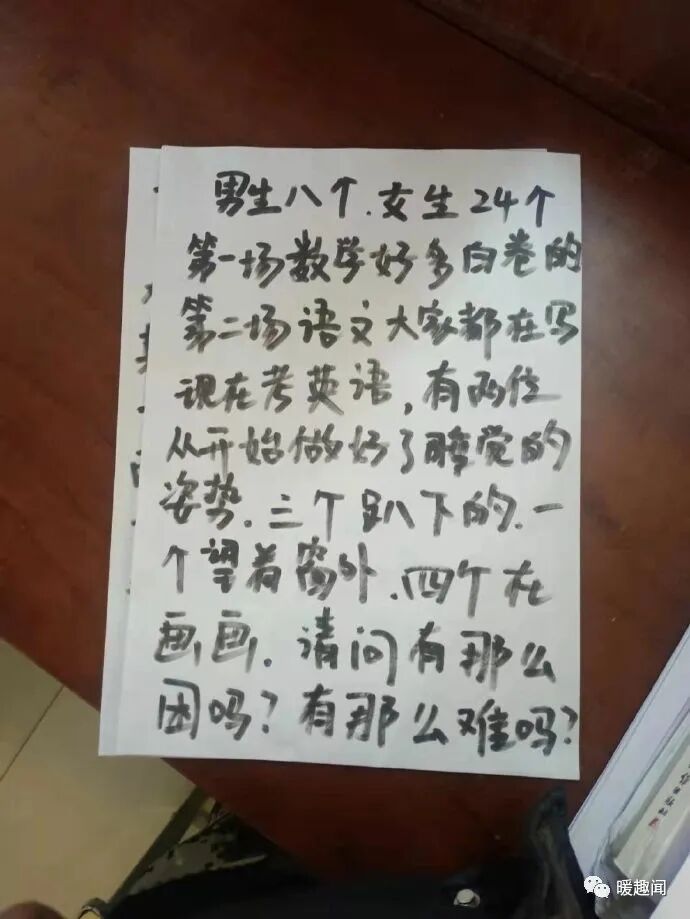 男生八个.女生24个
第一场数学好多白卷的
第二场语文大家都在写
现在考英语,有两位
从开始做好了睡觉的
姿势.三个趴下的.一
个望着窗外.四个在
画画.请问有那么
困吗?有那么难吗?
暖趣闻